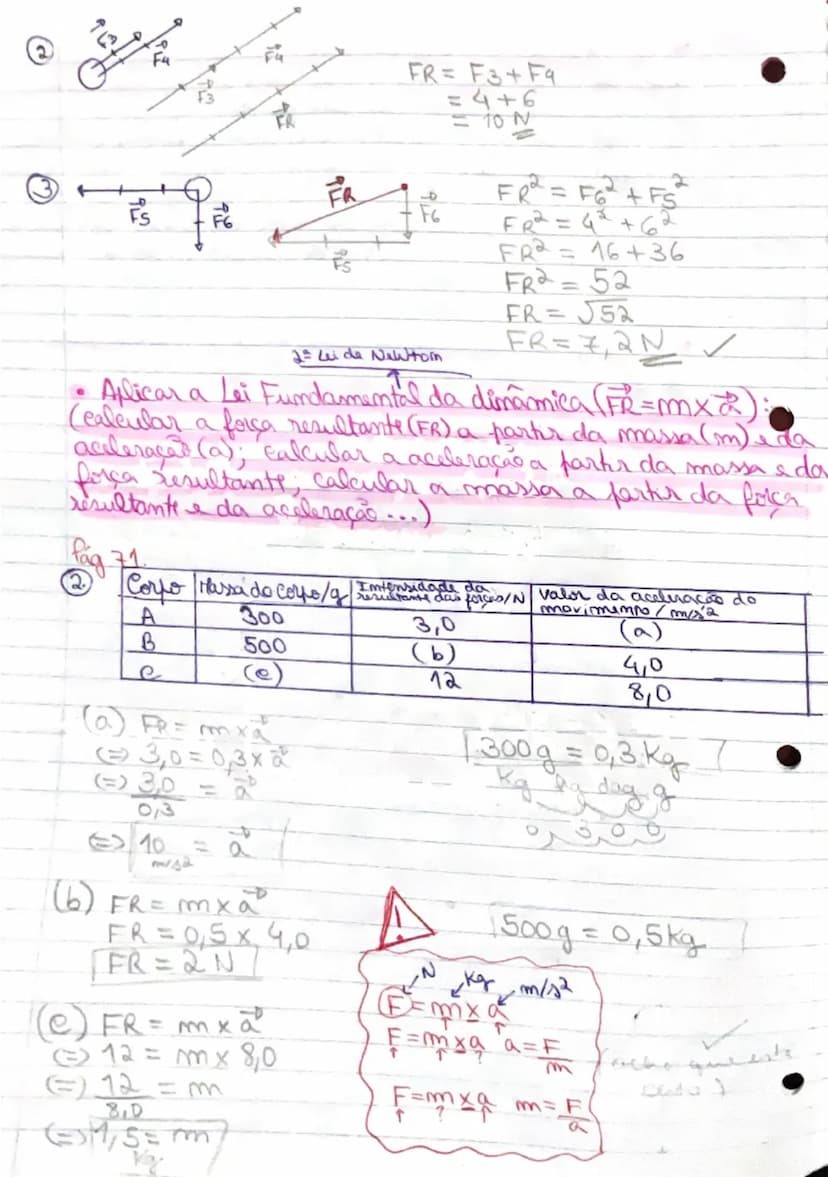 ② F3 F4
F3 F4
FR
FR = F3 + F4
= 4 + 6
= 10 N
③ F5 F6
FR F6
F5
FR² = F6² + F5²
FR² = 4² + 6²
FR² = 16 + 36
FR² = 52
FR = √52
FR = 7,2 N ✓
2ª Lei de Newtom
• Aplicar a Lei Fundamental da dinâmica (FR = m x a):
(calcular a força resultante (FR) a partir da massa (m) e da
aceleração (a); calcular a aceleração a partir da massa e da
força resultante; calcular a massa a partir da força
resultante e da aceleração ...)
Pág 71.
② Corpo | Massa do corpo/g | Imtensidade da resultante das forças/N | Valor da aceleração do movimemno / m/s²
A | 300 | 3,0 | (a)
B | 500 | (b) | 4,0
C | (c) | 12 | 8,0
(a) FR = m x a
(=) 3,0 = 0,3 x a
(=) 3,0 / 0,3 = a
(=) 10 m/s² = a
300g = 0,3 Kg
Kg hg dag g
0, 3 0 0
(b) FR = m x a
FR = 0,5 x 4,0
FR = 2 N
500g = 0,5 kg
(c) FR = m x a
(=) 12 = m x 8,0
(=) 12 / 8,0 = m
(=) 1,5 = m
Kg
!
N Kg m/s²
F = m x a
F = m x a a = F/m
?
F = m x a m = F/a
?
✓
(acho que está